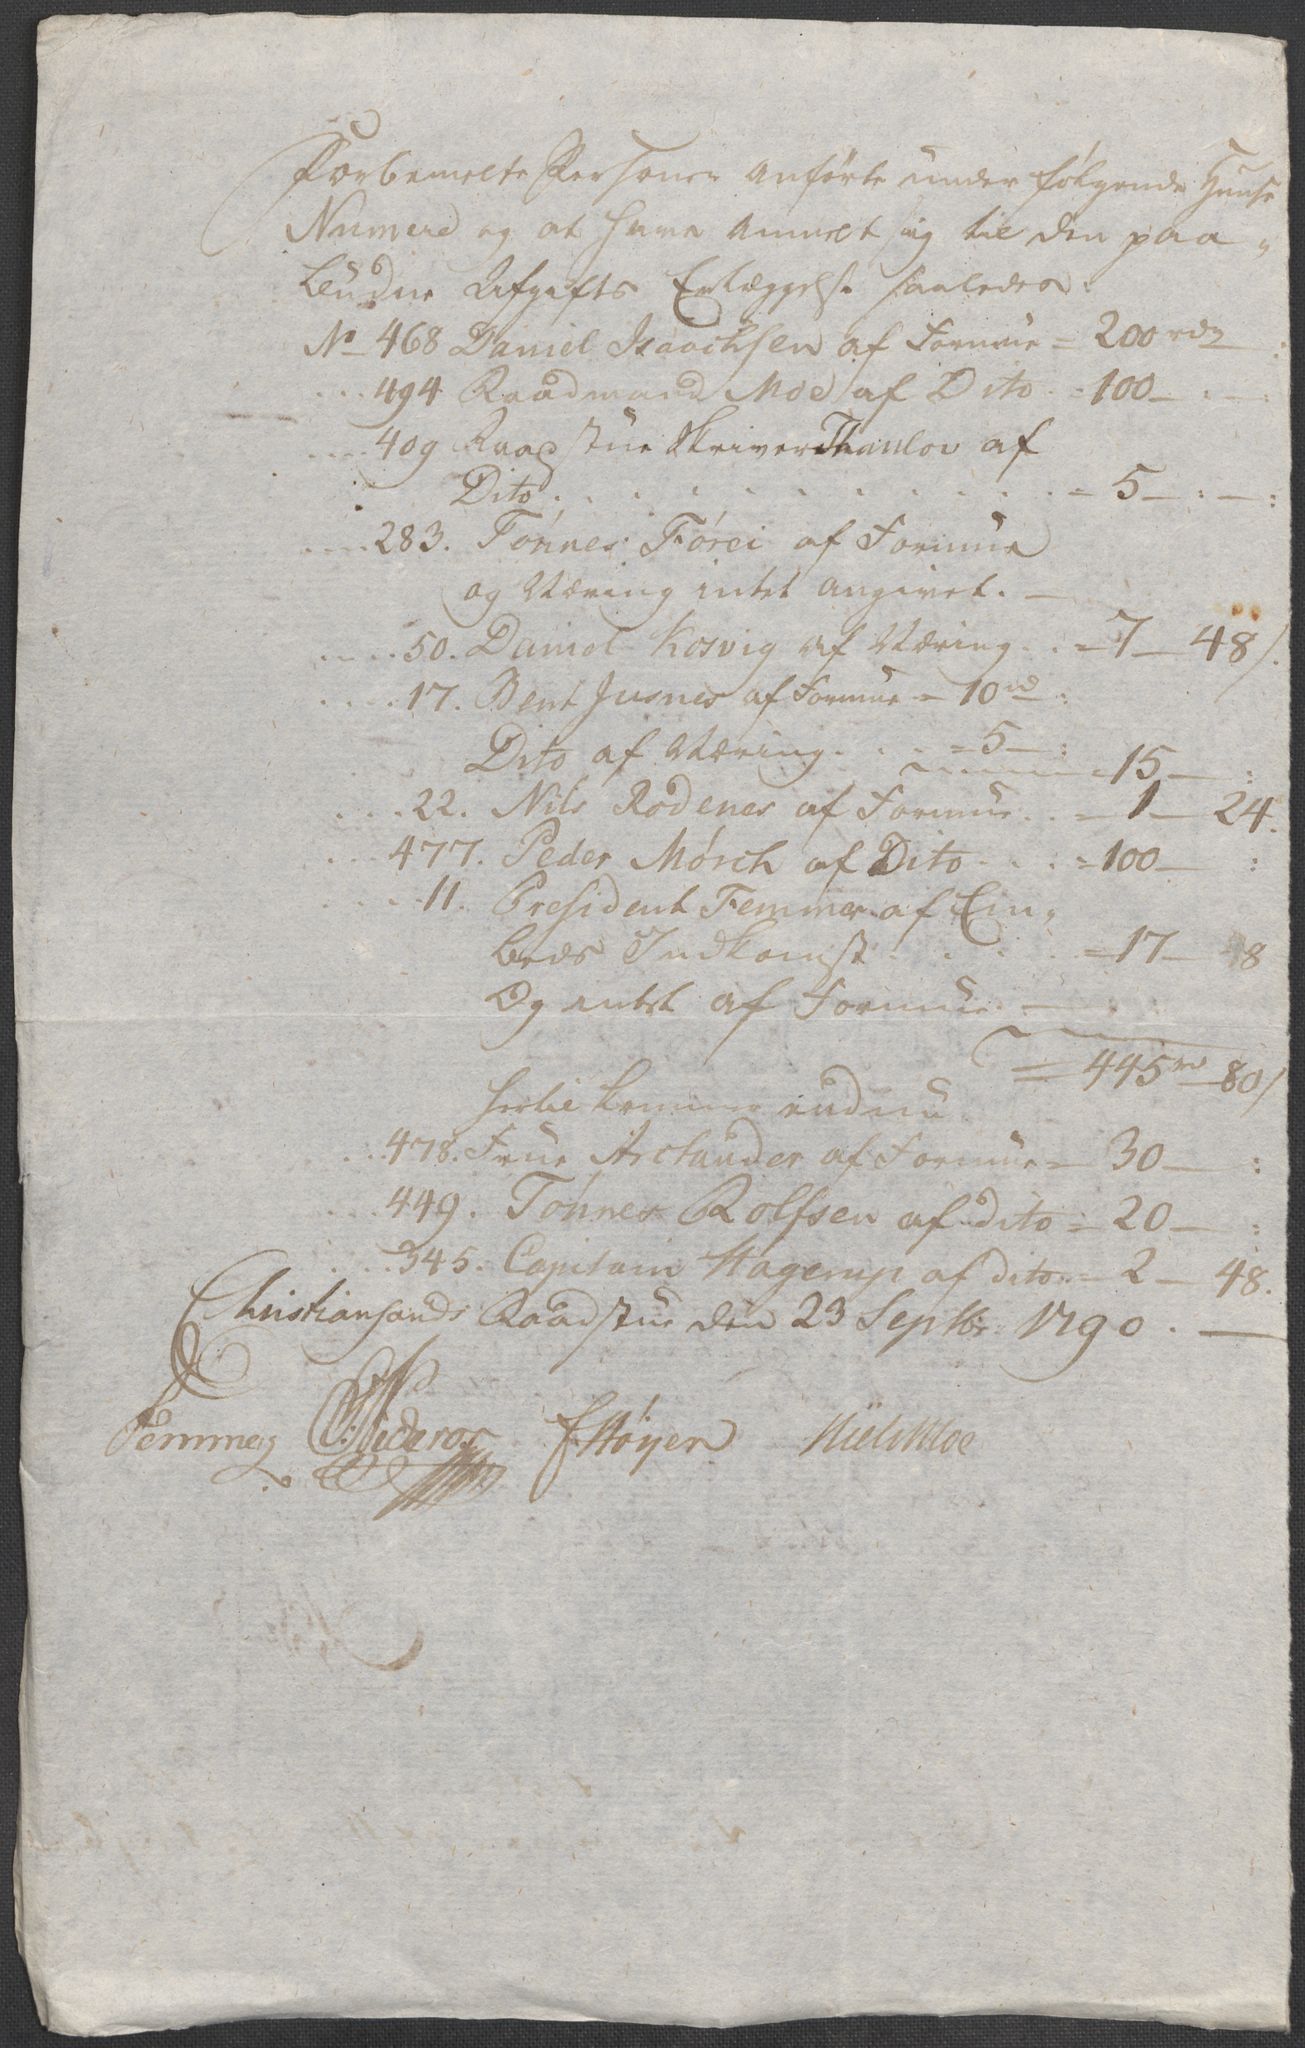 Forbemelte Personer anförte under fölgende Huuse
Numere og at have anmelt sig til den paa-
budne Afgifts Erlæggelse saaledes:
No 468 Daniel Isaachsen af Formue = 200 rdr
... 494 Raadmand Moe af Dito .. = 100 — . — :
... 409 Raadstue Skriver Thaulov af
Dito . . . . . . . . . . = 5 — : — :
... 283. Tönnes Förei af Formue
og Næring intet angivet. —
... 50. Daniel Kosvig af Næring .. = 7 — 48 /.
... 17. Bent Jusnes af Formue = 10 rd :
Dito af Næring. . . = 5 — : = 15 — :
... 22. Nils Rodenes af Formue .. = 1 — 24.
... 477. Peder Mörch af Dito . . . = 100 — :
... 11. President Femmer af Em-
beds Indkomst . . . . = 17 — 8
Og intet af Formue. —
= 445 rd 80 /
hertil kommer endnu
... 478. Frue Arctander af Formue = 30 — :
... 449. Tönnes Rolfsen af dito = 20 — :
... 345. Capitain Hagerup af dito = 2 — 48.
Christiansands Raadstue den 23 Septbr 1790. —
Femmer FHöyer Niels Moe